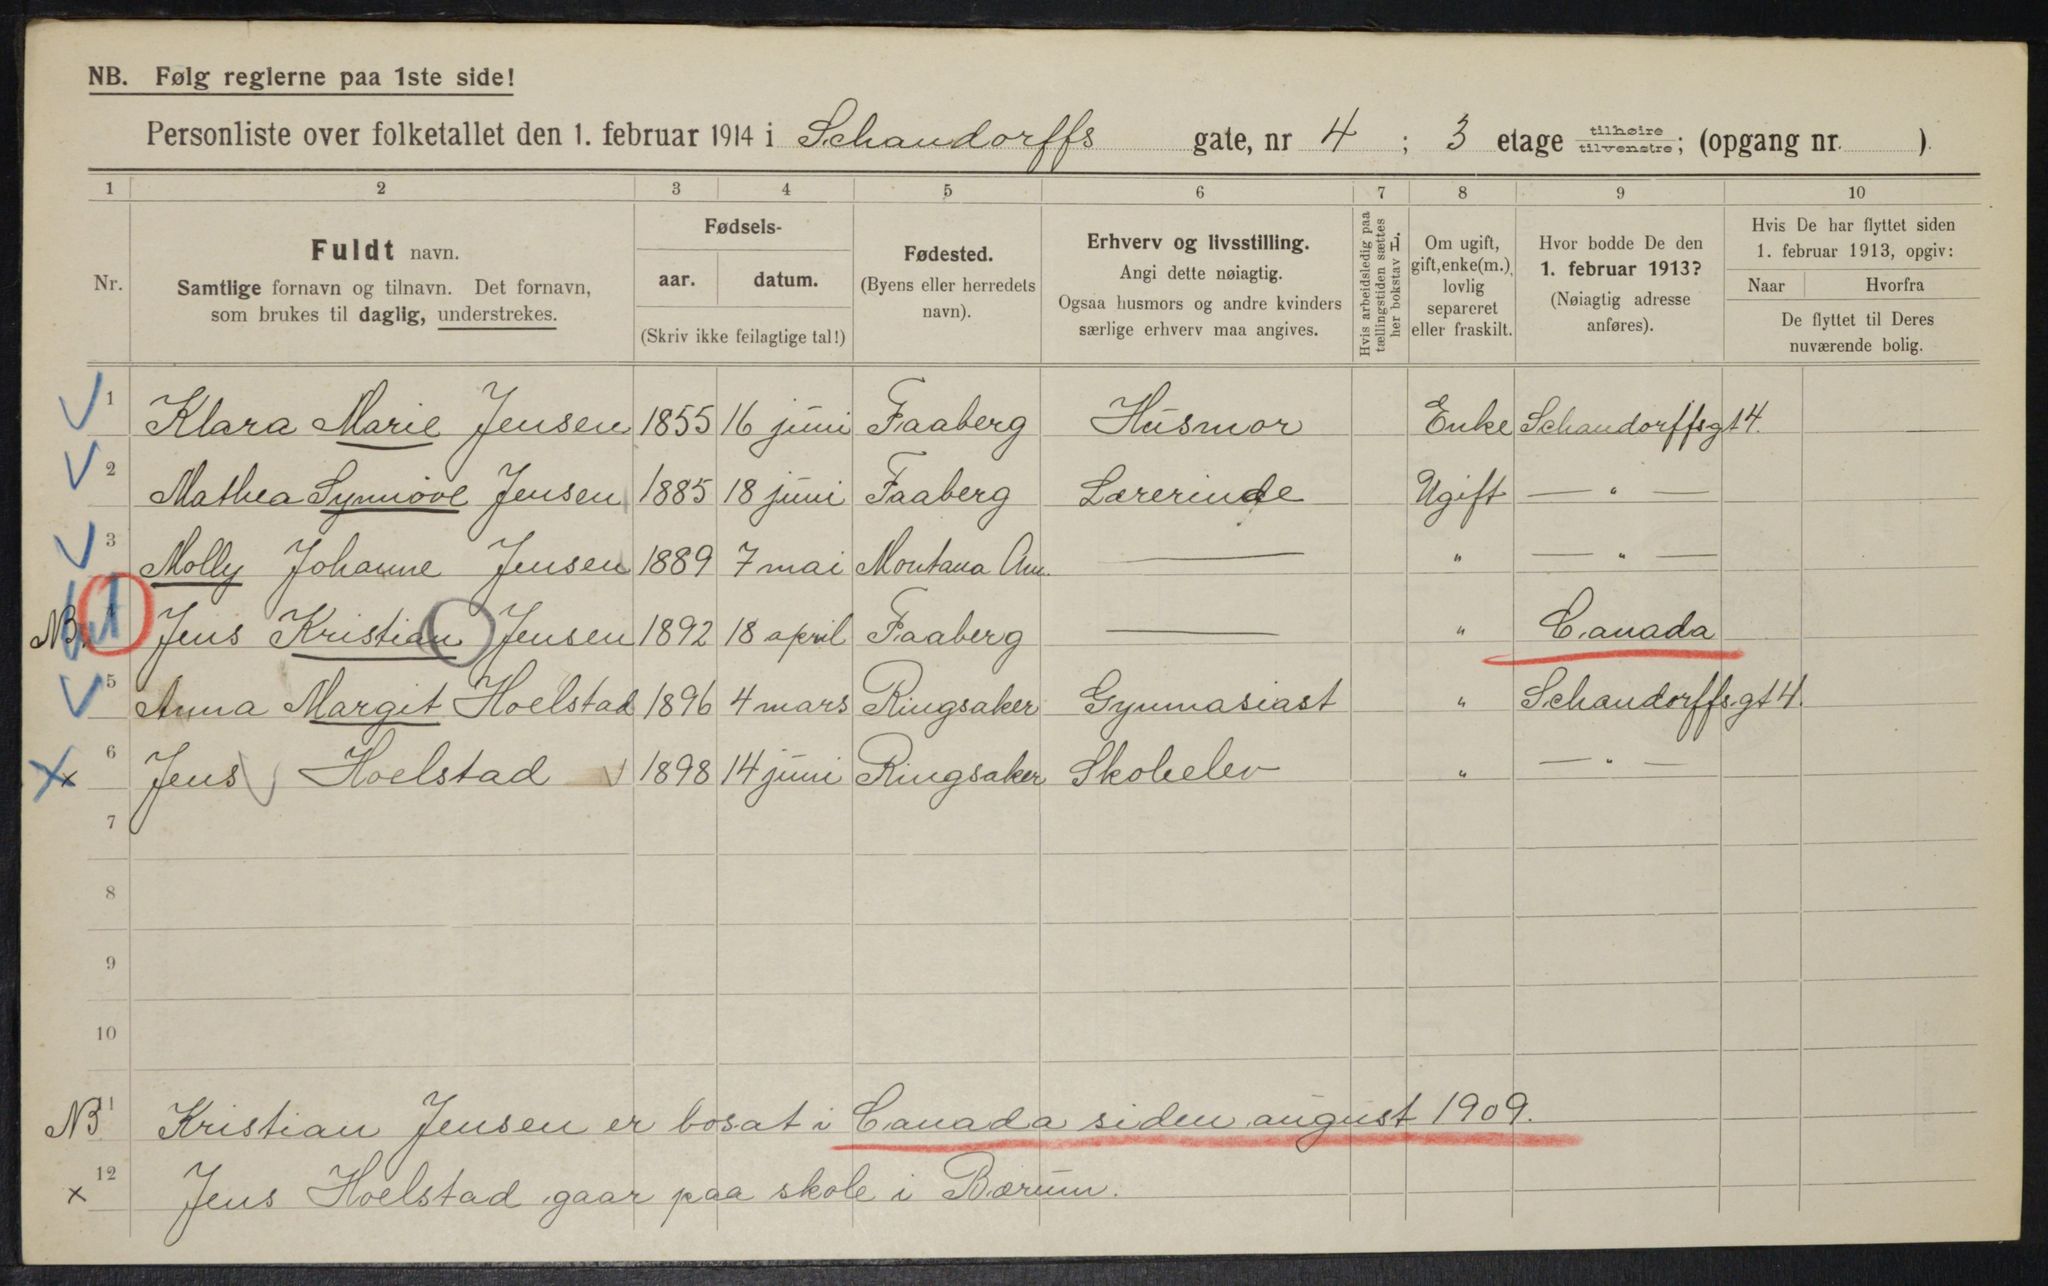 NB. Følg reglerne paa 1ste side!
Personliste over folketallet den 1. februar 1914 i Schandorffs gate, nr 4 ; 3 etage tilhøire tilvenstre; (opgang nr. )
1 2 3 4 5 6 7 8 9 10
Nr.
Fuldt navn.
Samtlige fornavn og tilnavn. Det fornavn,
som brukes til daglig, understrekes.
Fødsels-
aar. datum.
(Skriv ikke feilagtige tal!)
Fødested.
(Byens eller herredets
navn).
Erhverv og livsstilling.
Angi dette nøiagtig.
Ogsaa husmors og andre kvinders
særlige erhverv maa angives.
Hvis arbeidsledig paa
tællingstiden sættes
her bokstav L.
Om ugift,
gift, enke(m.),
lovlig
separeret
eller fraskilt.
Hvor bodde De den
1. februar 1913?
(Nøiagtig adresse
anføres).
Hvis De har flyttet siden
1. februar 1913, opgiv:
Naar Hvorfra
De flyttet til Deres
nuværende bolig.
1 Klara Marie Jensen 1855 16 juni Faaberg Husmor Enke Schandorffsgt 4.
2 Mathea Synnøve Jensen 1885 18 juni Faaberg Lærerinde Ugift — " —
3 Molly Johanne Jensen 1889 7 mai Montana Am. — " — " —
NB. Jens Kristian Jensen 1892 18 april Faaberg — " Canada
5 Anna Margit Hoelstad 1896 4 mars Ringsaker Gymnasiast " Schandorffsgt 4.
x 6 Jens Hoelstad 1898 14 juni Ringsaker Skoleelev " — " —
7
8
9
10
NB 11 Kristian Jensen er bosat i Canada siden august 1909.
x 12 Jens Hoelstad gaar paa skole i Bærum.